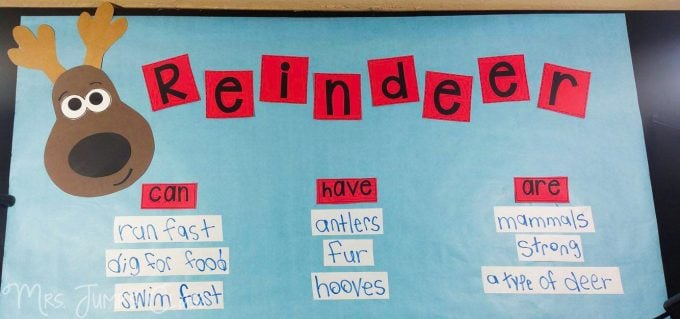 Reindeer
can
run fast
dig for food
swim fast
have
antlers
fur
hooves
are
mammals
strong
a type of deer
Mrs. Jum